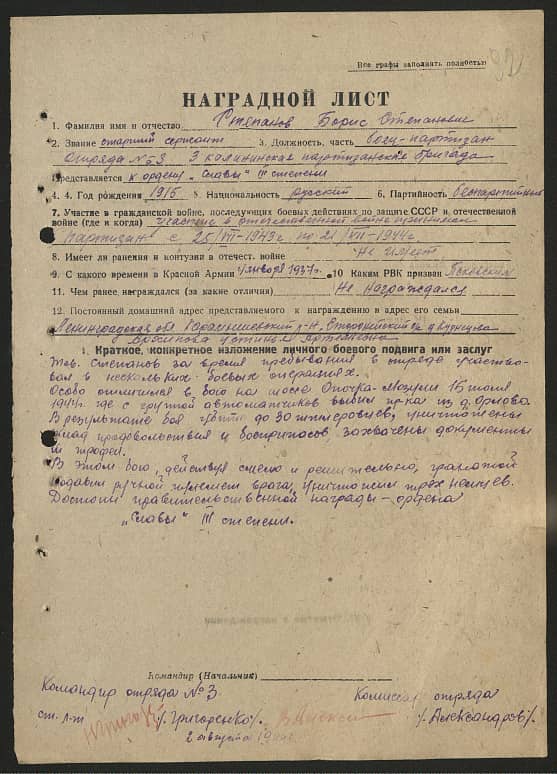 Все графы заполнять полностью
92
НАГРАДНОЙ ЛИСТ
1. Фамилия имя и отчество Степанов Борис Степанович
2. Звание старший сержант 3. Должность, часть боец-партизан
отряда №3 3 калининская партизанская бригада
Представляется к ордену „Славы" III степени
4. 4. Год рождения 1915 5. Национальность русский 6. Партийность беспартийный
7. Участие в гражданской войне, последующих боевых действиях по защите СССР и отечественной
войне (где и когда) участие в отечественной войне принимал
партизан с 25/VII-1943г по 21/VII-1944г
8. Имеет ли ранения и контузии в отечест. войне не имеет
9. С какого времени в Красной Армии января 1937г. 10 Каким РВК призван Псковским
11. Чем ранее награждался (за какие отличия) Не награждался
12. Постоянный домашний адрес представляемого к награждению и адрес его семьи
Ленинградская обл. р-н,
Архипова Устинья Артемьевна
1. Краткое, конкретное изложение личного боевого подвига или заслуг
Тов. Степанов за время пребывания в отряде участво-
вал в нескольких боевых операциях.
Особо отличился в бою на шоссе Опочка-Мозули 15 июля
1944г. где с группой автоматчиков выбил пр-ка из д. Орлова
В результате боя убито до 30 гитлеровцев, уничтожены
склад продовольствия и боеприпасов, захвачены документы
и трофеи.
В этом бою, действуя смело и решительно, гранатой
подавил ручной пулемет врага, уничтожил трех немцев.
Достоин правительственной награды - ордена
„Славы" III степени.
Командир (Начальник)
Командир отряда №3.
Комиссар отряда
ст. л-т /Григоренко/. /Александров/.
2 августа